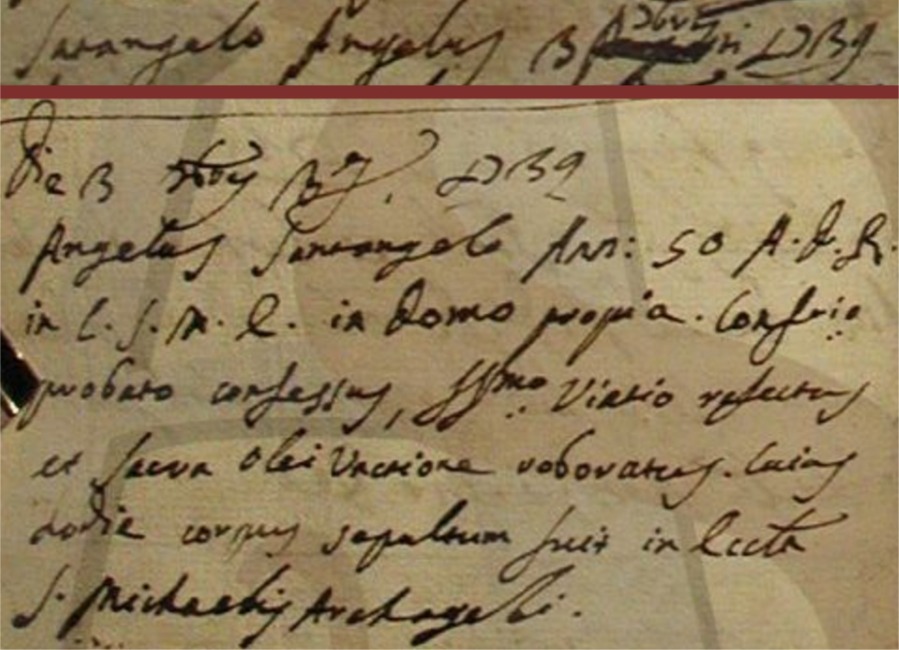 Santangelo Angelus 13
Die 13
Angelus Santangelo Ann: 50 A. D. R.
in C. S. M. E. in domo propria. Confrio
probato confessus, SSmo Viatio refectus
et Sacra Olei Unctione roboratus. Cuius
hodie corpus sepultum fuit in Eccta
S. Michaelis Archageli.